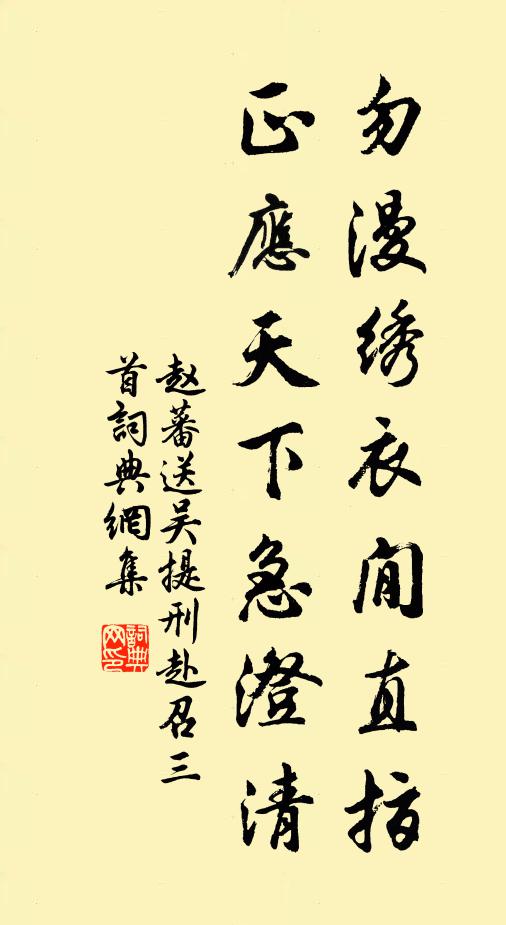 勿漫绣衣闲直指
正應天下急澄清
赵蕃送吴提刑赴召三
首詞典網集
詞典
网印